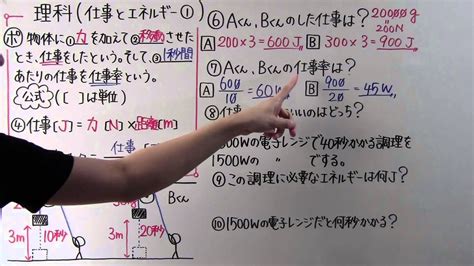 理科(仕事とエネルギー①)
ポ 物体に①力を加えて②移動させた
とき、仕事をしたという。そして、②1秒間
あたりの仕事を仕事率という。
公式([ ]は単位)
④仕事[J]=力[N]×
仕事
10秒
20秒
3m
3m
Bくん
⑥Aくん、Bくんのした仕事は?
20000g
200N
A 200×3=600J B 300×3=900J
⑦Aくん、Bくんの仕事率は?
A 600/10=60W B 900/20=45W
⑧仕事 いいのはどっち?
Wの電子レンジで40秒かかる調理を
1500Wの 〃 でする。
⑨この調理に必要なエネルギーは何J?
⑩1500Wの電子レンジだと何秒かかる?